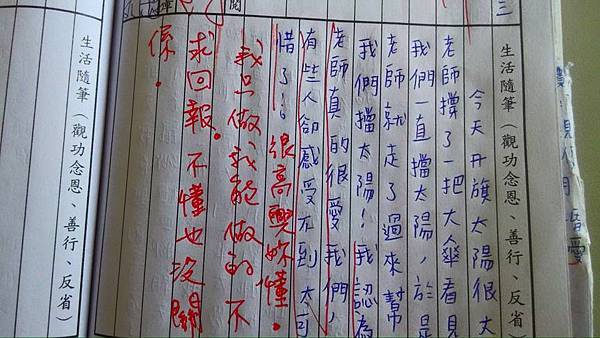 三
閱
生活隨筆（觀功念恩、善行、反省）
今天升旗太陽很大
老師撐了一把大傘看見
我們一直擋太陽，於是
老師就走了過來幫
我們擋太陽！我認為
老師真的很愛我們，
有些人卻感受不到太可
惜了！很高興妳懂。
我只做我能做的不
求回報。不懂也沒關
係。
生活隨筆（觀功念恩、善行、反省）